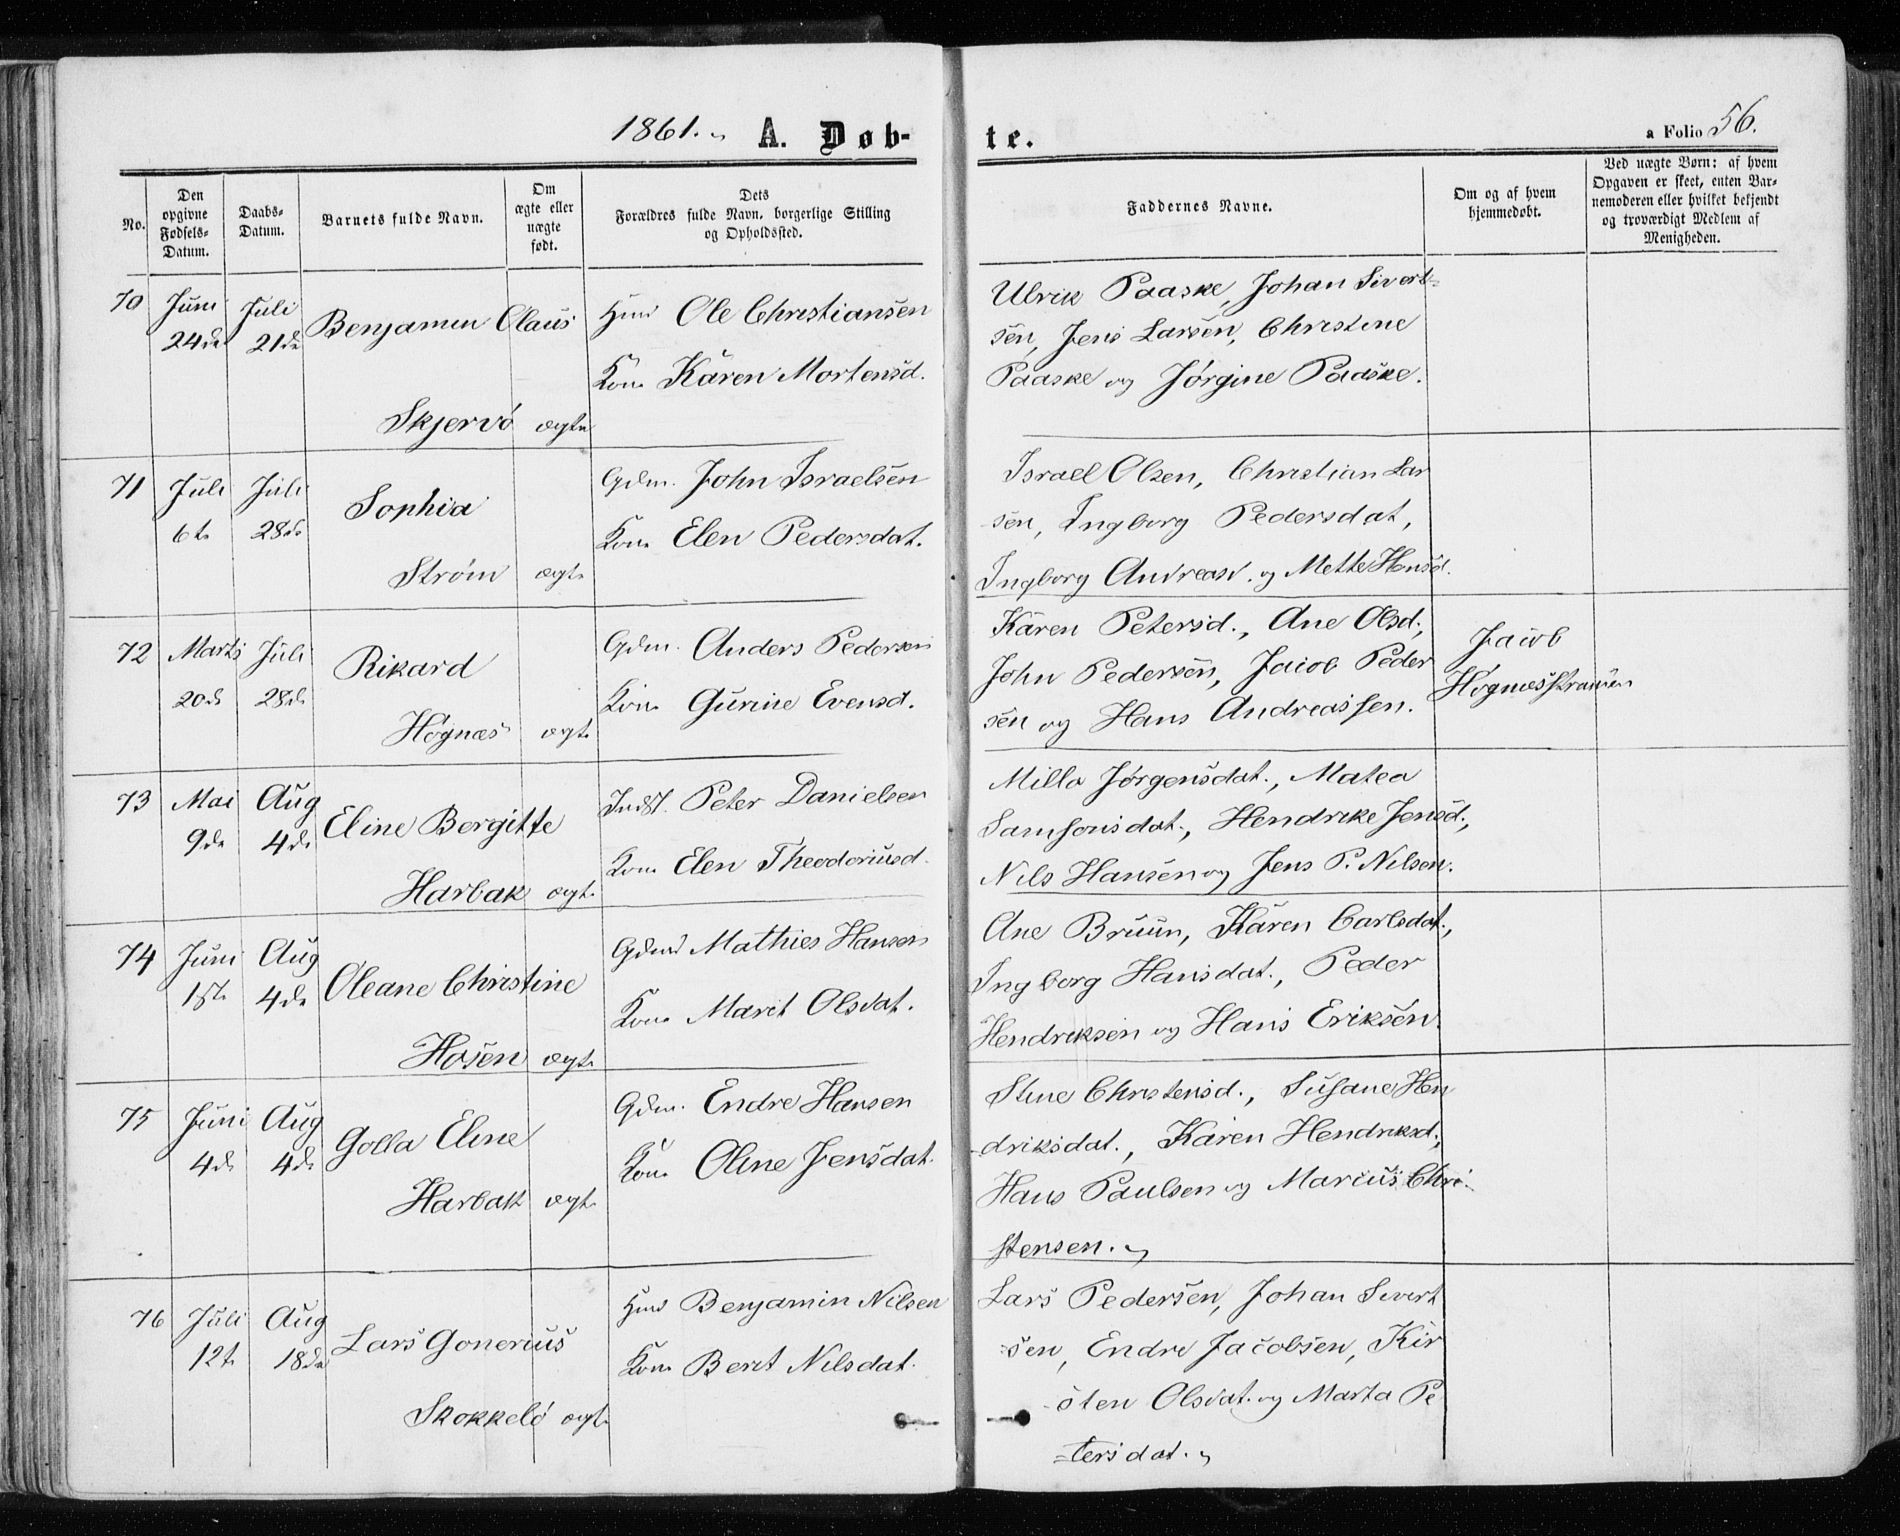 1861. A. Døb-
te.
a Folio 56.
No.
Den opgivne Fødsels-Datum.
Daabs-Datum.
Barnets fulde Navn.
Om ægte eller uægte født.
Dets Forældres fulde Navn, borgerlige Stilling og Opholdssted.
Faddernes Navne.
Om og af hvem hjemmedøbt.
Ved uægte Børn: af hvem Opgaven er skeet, enten Barnemoderen eller hvilket bekjendt og troværdigt Medlem af Menigheden.
70 Juni Juli Benjamin Claus Huus Ole Christiansen
24de 21de Kone Karen Mortensd.
Skjervö ægte
Ulrik Paaske, Johan Sivert-
sen, Jens Larsen, Christine
Paaske og Jørgine Paaske.
71 Juli Juli Sophia Gdm. John Israelsen
6te 28de Kone Elen Pedersdat.
Strøm ægte
Israel Olsen, Christian Lar
sen, Ingborg Pedersdat,
Ingborg Andreasd. og Mette Hansd.
72 Marts Juli Rikard Gdm. Anders Pedersen
20de 28de Kone Gurine Evensd.
Høgnæs ægte
Karen Petersd., Ane Olsd.,
John Pedersen, Jacob Peder
sen og Hans Andreassen.
Jacob
Høgnæsstranden
73 Mai Aug Eline Bergitte Indst. Peter Danielsen
9de 4de Kone Elen Theodoriusd.
Harbak ægte
Milla Jørgensdat., Matea
Samsonsdat., Hendrike Jensd.,
Nils Hansen og Jens P. Nilsen.
74 Juni Aug Oleane Christine Gdm Mathies Hansen
1ste 4de Kone Marit Olsdat.
Hosen ægte
Ane Bruun, Karen Carlsdat.,
Ingborg Hansdat., Peder
Hendriksen og Hans Eriksen.
75 Juni Aug Golla Eline Gdm. Endre Hansen
4de 4de Kone Oline Jensdat.
Harbak ægte
Stine Christensd., Susane Hen
driksdat., Karen Hendriksd.,
Hans Paulsen og Marcus Chri-
stensen.
76 Juli Aug Lars Gonerius Huus Benjamin Nilsen
12te 18de Kone Berit Nilsdat.
Skokkelö ægte
Lars Pedersen, Johan Sivert
sen, Endre Jacobsen, Kir
sten Olsdat. og Marta Pe
tersdat.